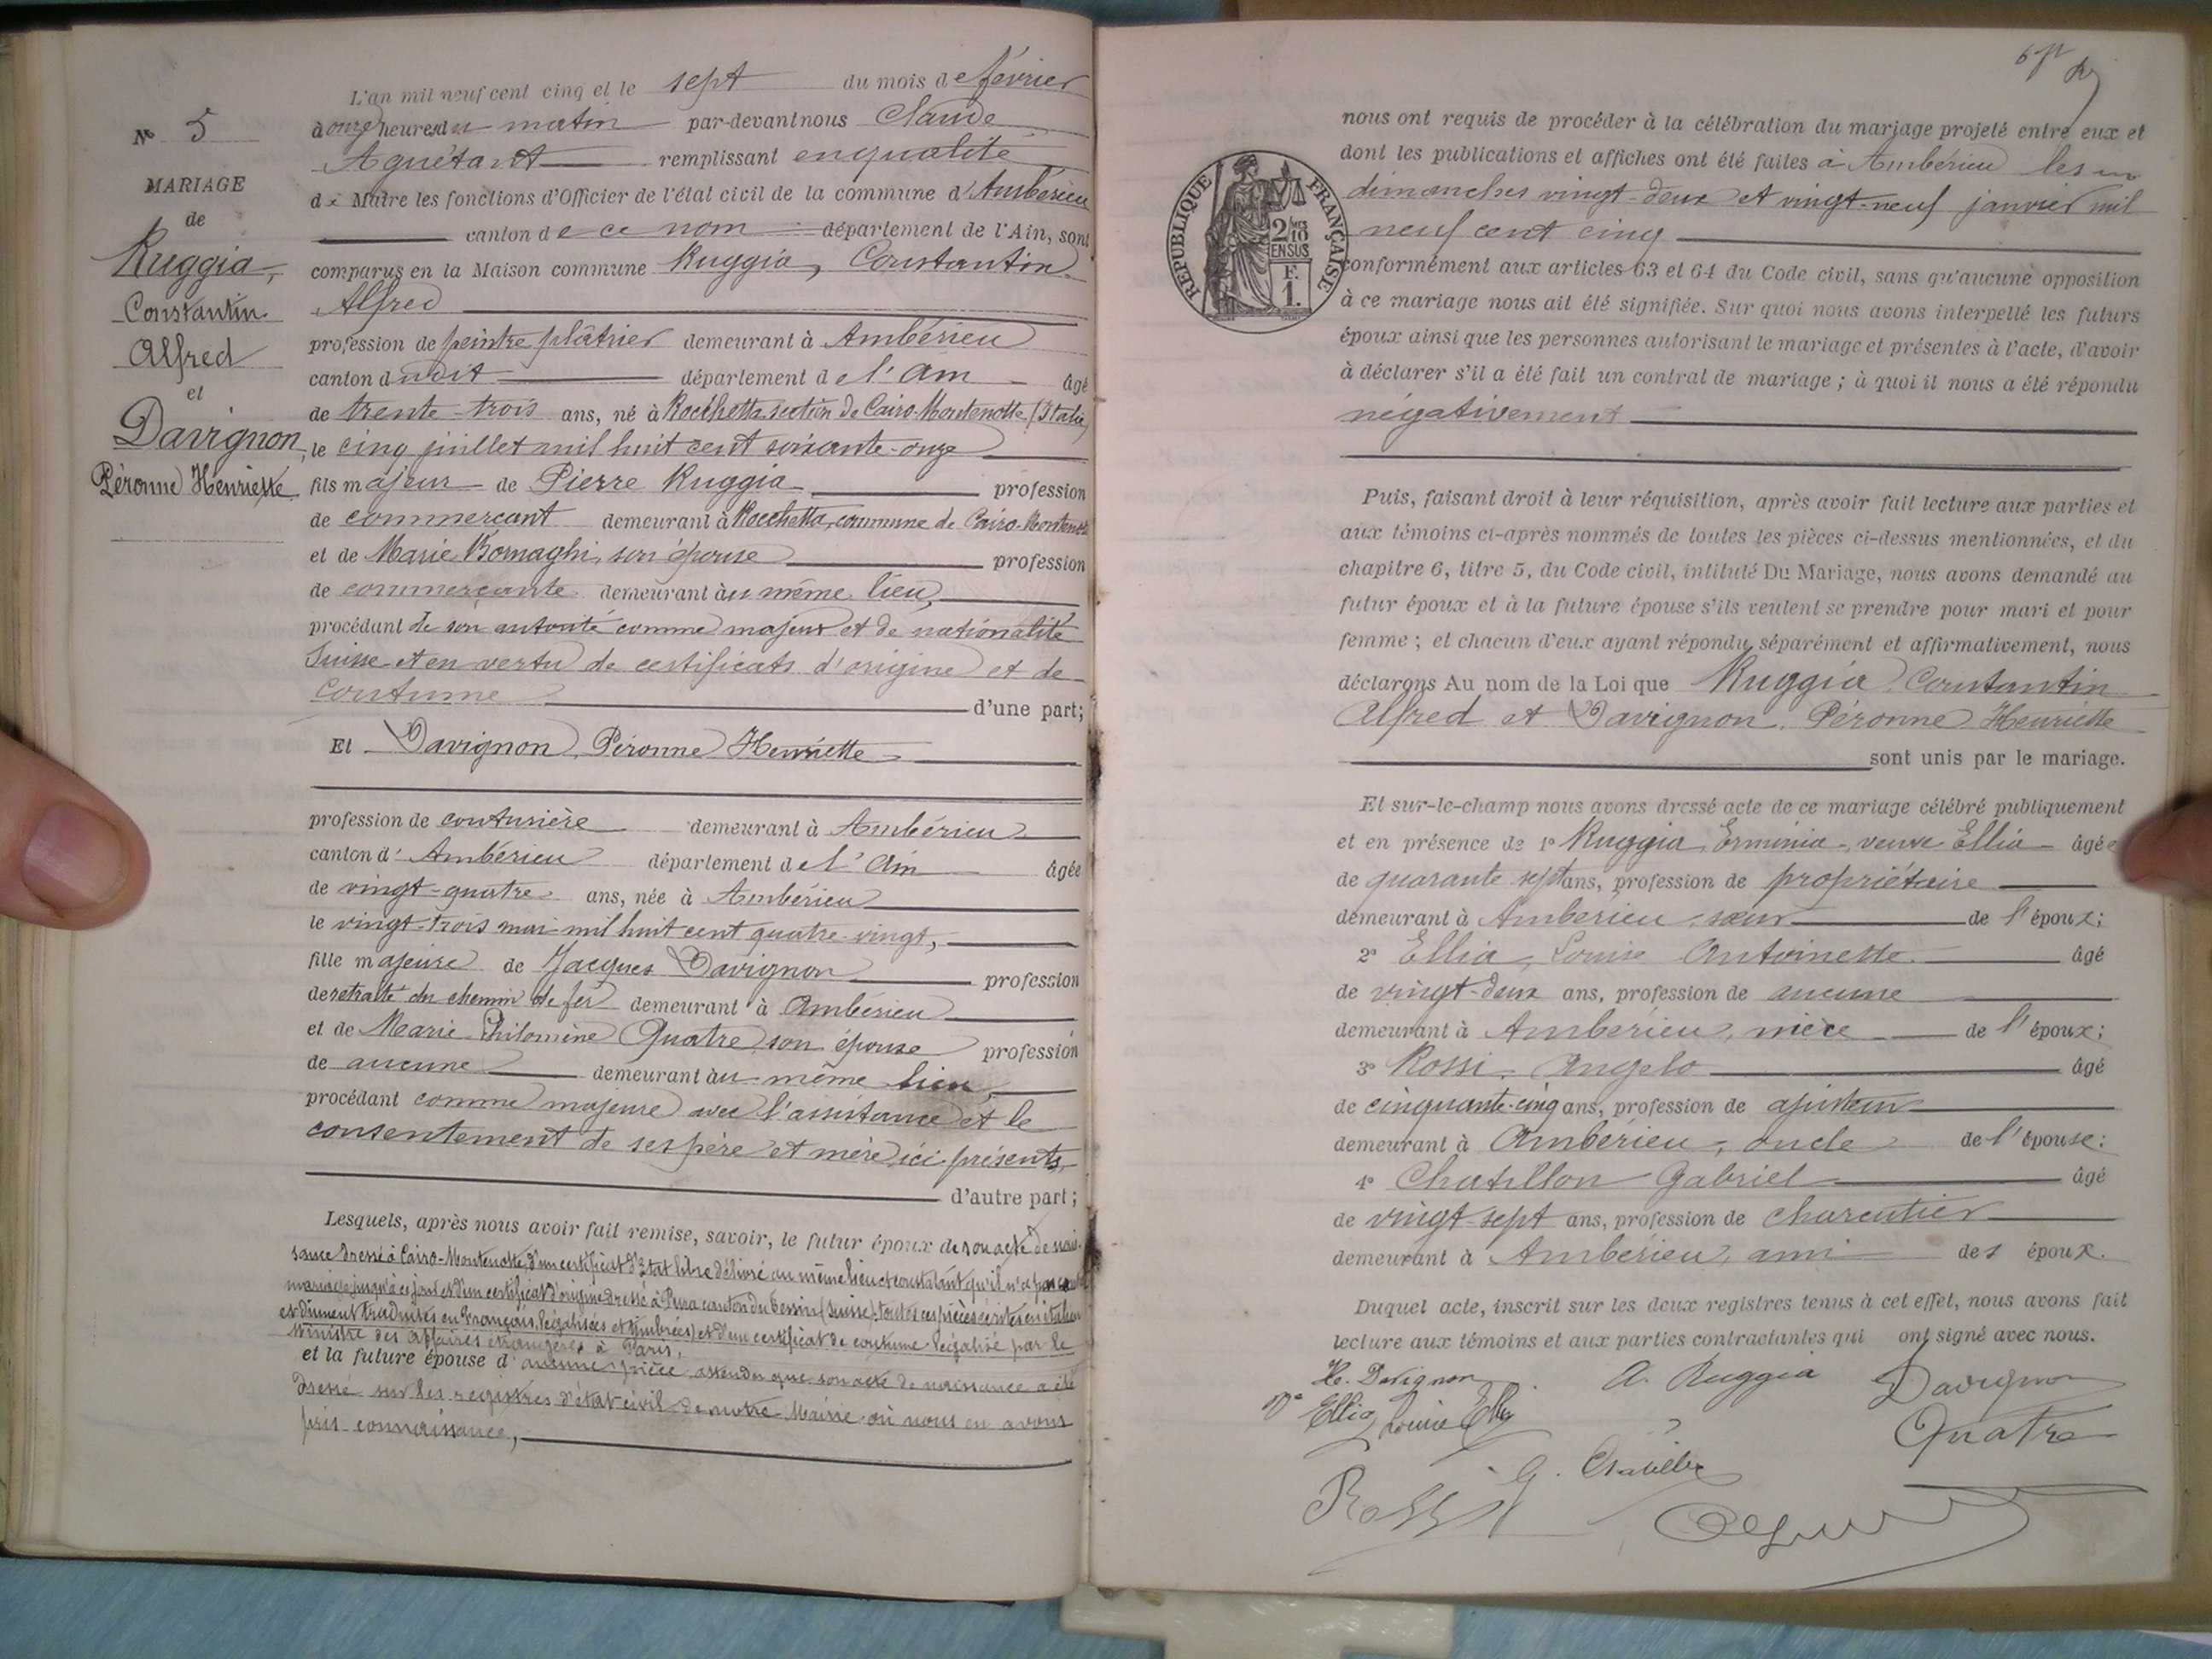 N° 5
MARIAGE
de
Ruggia,
Constantin
Alfred
et
Davignon,
Péronne Henriette
L'an mil neuf cent cinq et le sept du mois de février
à onze heures du matin par-devant nous Claude
Aguétant remplissant en qualité
de Maire les fonctions d'Officier de l'état civil de la commune d'Ambérieu
canton de ce nom département de l'Ain, sont
comparus en la Maison commune Ruggia, Constantin
Alfred
profession de peintre plâtrier demeurant à Ambérieu
canton dudit département de l'Ain âgé
de trente-trois ans, né à Rocchetta section de Cairo-Montenotte (Italie)
le cinq juillet mil huit cent soixante-onze
fils majeur de Pierre Ruggia profession
de commerçant demeurant à Rocchetta, commune de Cairo-Montenotte
et de Marie Bomaghi, son épouse profession
de commerçante demeurant au même lieu,
procédant de son autorité comme majeur et de nationalité
Suisse et en vertu de certificats d'origine et de
coutume d'une part;
Et Davignon, Péronne Henriette
profession de couturière demeurant à Ambérieu
canton d'Ambérieu département de l'Ain âgée
de vingt-quatre ans, née à Ambérieu
le vingt-trois mai mil huit cent quatre-vingt,
fille majeure de Jacques Davignon profession
de retraité du chemin de fer demeurant à Ambérieu
et de Marie Philomène Quatre, son épouse profession
de aucune demeurant au même lieu,
procédant comme majeure avec l'assistance et le
consentement de ses père et mère, ici présents,
d'autre part;
Lesquels, après nous avoir fait remise, savoir, le futur époux de son acte de nais-
sance dressé à Cairo-Montenotte, d'un certificat d'Etat libre délivré au même lieu et constatant qu'il n'a pas
mariage jusqu'à ce jour et d'un certificat d'origine dressé à Pura canton du Tessin (Suisse), toutes ces pièces écrites en italien
et dûment traduites en Français, légalisées et timbrées) et d'un certificat de coutume légalisé par le
Ministre des Affaires étrangères à Paris,
et la future épouse d'aucune pièce attendu que son acte de naissance a été
dressé sur les registres d'état civil de notre Mairie où nous en avons
pris connaissance,
nous ont requis de procéder à la célébration du mariage projeté entre eux et
dont les publications et affiches ont été faites à Ambérieu les
dimanches vingt-deux et vingt-neuf janvier mil
neuf cent cinq
conformément aux articles 63 et 64 du Code civil, sans qu'aucune opposition
à ce mariage nous ait été signifiée. Sur quoi nous avons interpellé les futurs
époux ainsi que les personnes autorisant le mariage et présentes à l'acte, d'avoir
à déclarer s'il a été fait un contrat de mariage; à quoi il nous a été répondu
négativement
RÉPUBLIQUE FRANÇAISE
2/10 MES
EN SUS
F.
1.
Puis, faisant droit à leur réquisition, après avoir fait lecture aux parties et
aux témoins ci-après nommés de toutes les pièces ci-dessus mentionnées, et du
chapitre 6, titre 5, du Code civil, intitulé Du Mariage, nous avons demandé au
futur époux et à la future épouse s'ils veulent se prendre pour mari et pour
femme; et chacun d'eux ayant répondu séparément et affirmativement, nous
déclarons Au nom de la Loi que Ruggia Constantin
Alfred et Davignon Péronne Henriette
sont unis par le mariage.
Et sur-le-champ nous avons dressé acte de ce mariage célébré publiquement
et en présence de 1° Ruggia, Erminia, veuve Ellia âgée
de quarante sept ans, profession de propriétaire
demeurant à Ambérieu, sœur de l'époux;
2° Ellia, Louise Antoinette âgé
de vingt-deux ans, profession de aucune
demeurant à Ambérieu, nièce de l'époux;
3° Rossi, Angelo âgé
de cinquante-cinq ans, profession de ajusteur
demeurant à Ambérieu, oncle de l'épouse;
4° Chatillon Gabriel âgé
de vingt-sept ans, profession de charcutier
demeurant à Ambérieu, ami des époux.
Duquel acte, inscrit sur les deux registres tenus à cet effet, nous avons fait
lecture aux témoins et aux parties contractantes qui ont signé avec nous.
H. Davignon A. Ruggia Davignon
Ve Ellia Louise Ellia Quatre
G. Chatillon
Rossi